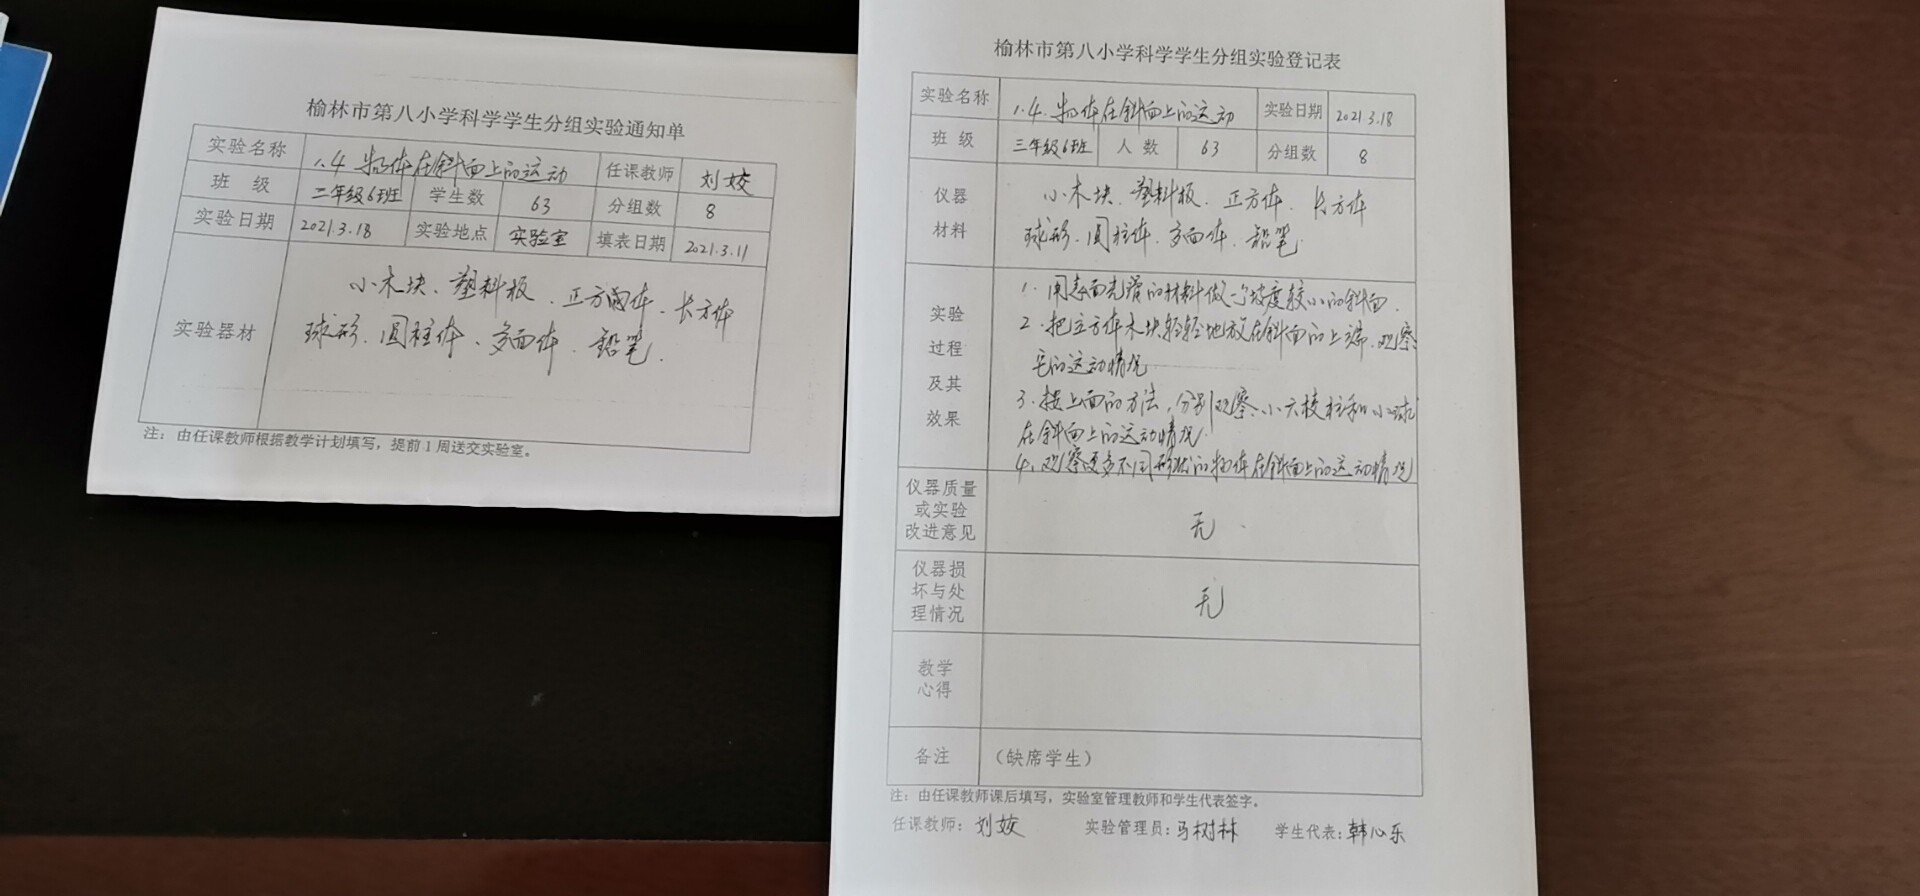 榆林市第八小学科学学生分组实验通知单
实验名称 1.4 物体在斜面上的运动 任课教师 刘姣
班 级 三年级6班 学生数 63 分组数 8
实验日期 2021.3.18 实验地点 实验室 填表日期 2021.3.11
实验器材
小木块、塑料板、正方体、长方体
球形、圆柱体、多面体、铅笔.
注：由任课教师根据教学计划填写，提前1周送交实验室。
榆林市第八小学科学学生分组实验登记表
实验名称 1.4. 物体在斜面上的运动 实验日期 2021.3.18
班 级 三年级6班 人 数 63 分组数 8
仪器
材料
小木块、塑料板、正方体、长方体
球形、圆柱体、多面体、铅笔.
实验
过程
及其
效果
1. 用表面光滑的材料做一个坡度较小的斜面.
2. 把立方体木块轻轻地放在斜面的上端，观察
它的运动情况
3. 按上面的方法，分别观察小六棱柱和小球
在斜面上的运动情况.
4. 观察更多不同形状的物体在斜面上的运动情况
仪器质量
或实验
改进意见
无
仪器损
坏与处
理情况
无
教学
心得
备注 （缺席学生）
注：由任课教师课后填写，实验室管理教师和学生代表签字。
任课教师：刘姣 实验管理员：马树林 学生代表：韩心乐